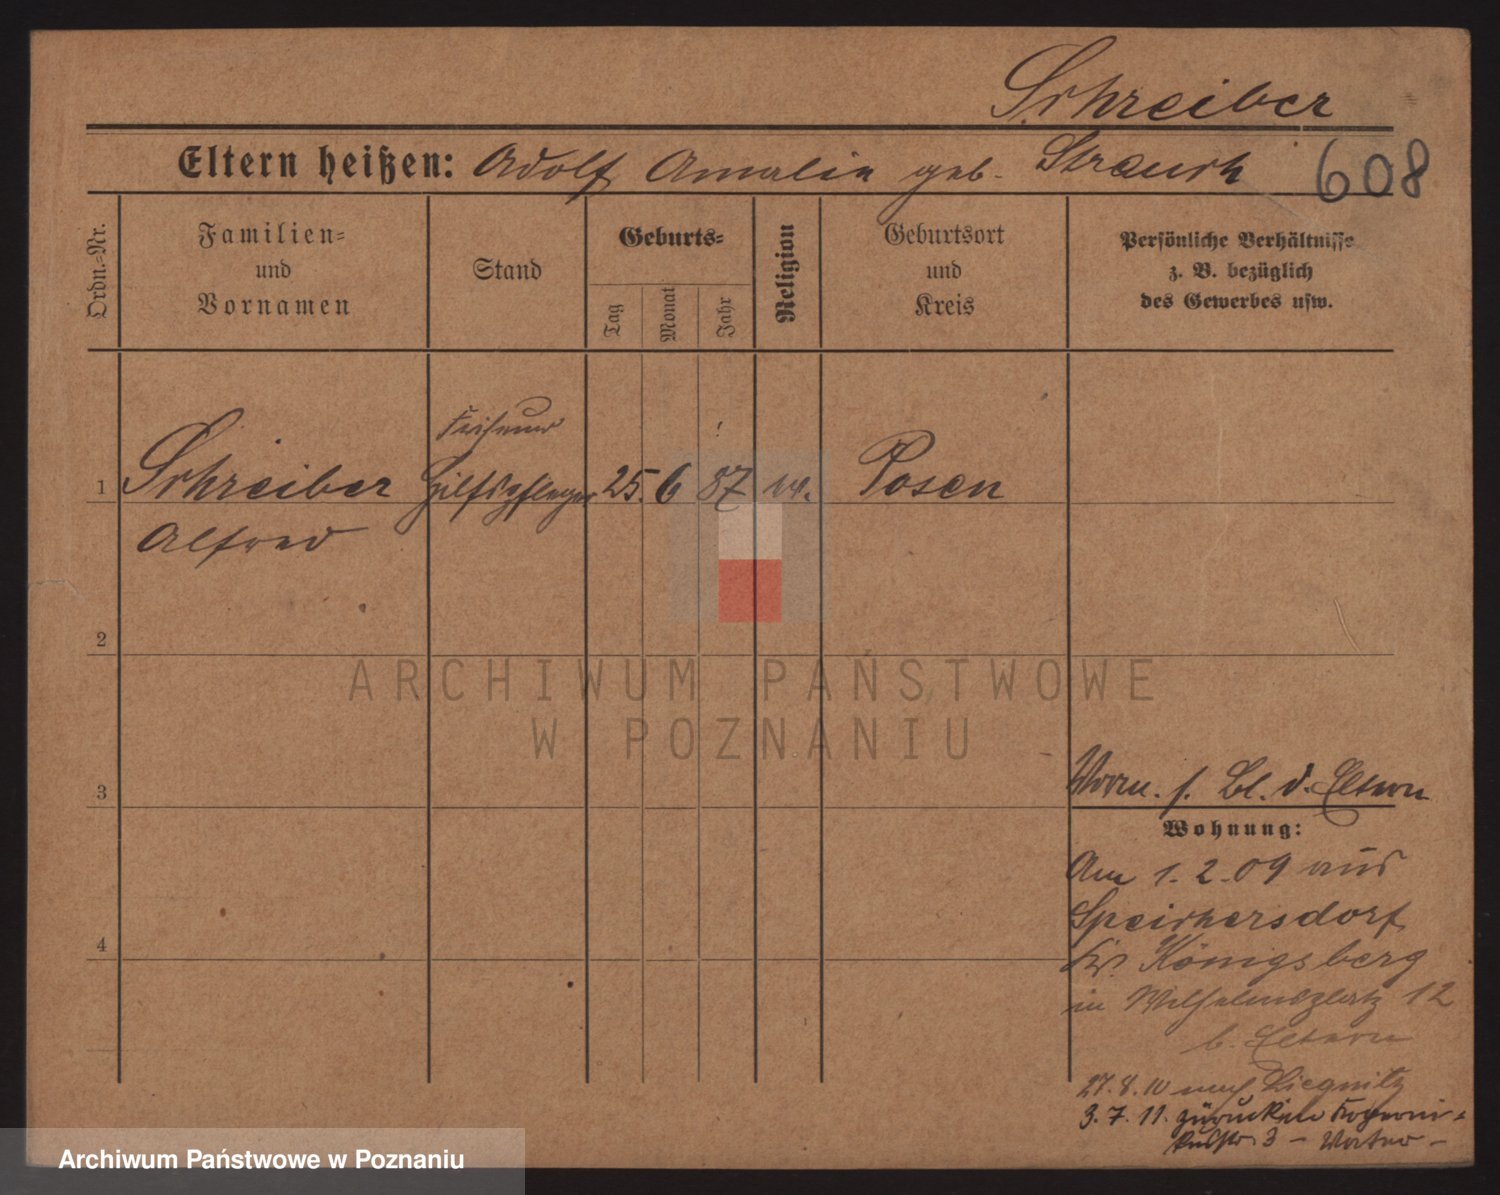 Schreiber
Eltern heißen: Adolf Amalie geb. Strauch
608
Ordn.=Nr.
Familien=
und
Vornamen
Stand
Geburts=
Tag
Monat
Jahr
Religion
Geburtsort
und
Kreis
Persönliche Verhältnisse
z. B. bezüglich
des Gewerbes usw.
Friseur
1 Schreiber Hilfspfleger 25. 6 87 Posen
Alfred
2
ARCHIWUM PAŃSTWOWE
W POZNANIU
3
Vorm. s. Bl. d. Eltern
Wohnung:
Am 1.2.09 aus
Speichersdorf
4
Kr. Königsberg
in Wilhelmsplatz 12
b. Eltern
27.8.10 nach Liegnitz
3.7.11. zurück in Koperni-
kusstr. 3 - Vater -
Archiwum Państwowe w Poznaniu